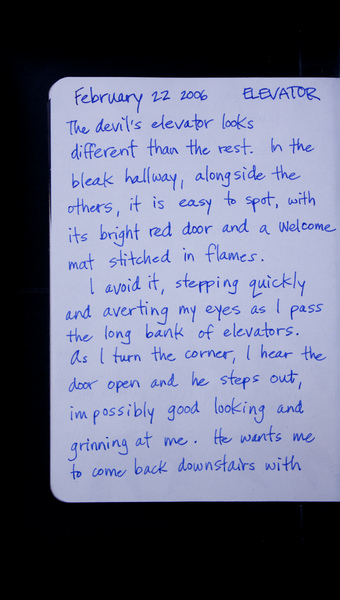 February 22 2006 ELEVATOR
The devil's elevator looks
different than the rest. In the
bleak hallway, alongside the
others, it is easy to spot, with
its bright red door and a Welcome
mat stitched in flames.
I avoid it, stepping quickly
and averting my eyes as I pass
the long bank of elevators.
As I turn the corner, I hear the
door open and he steps out,
impossibly good looking and
grinning at me. He wants me
to come back downstairs with